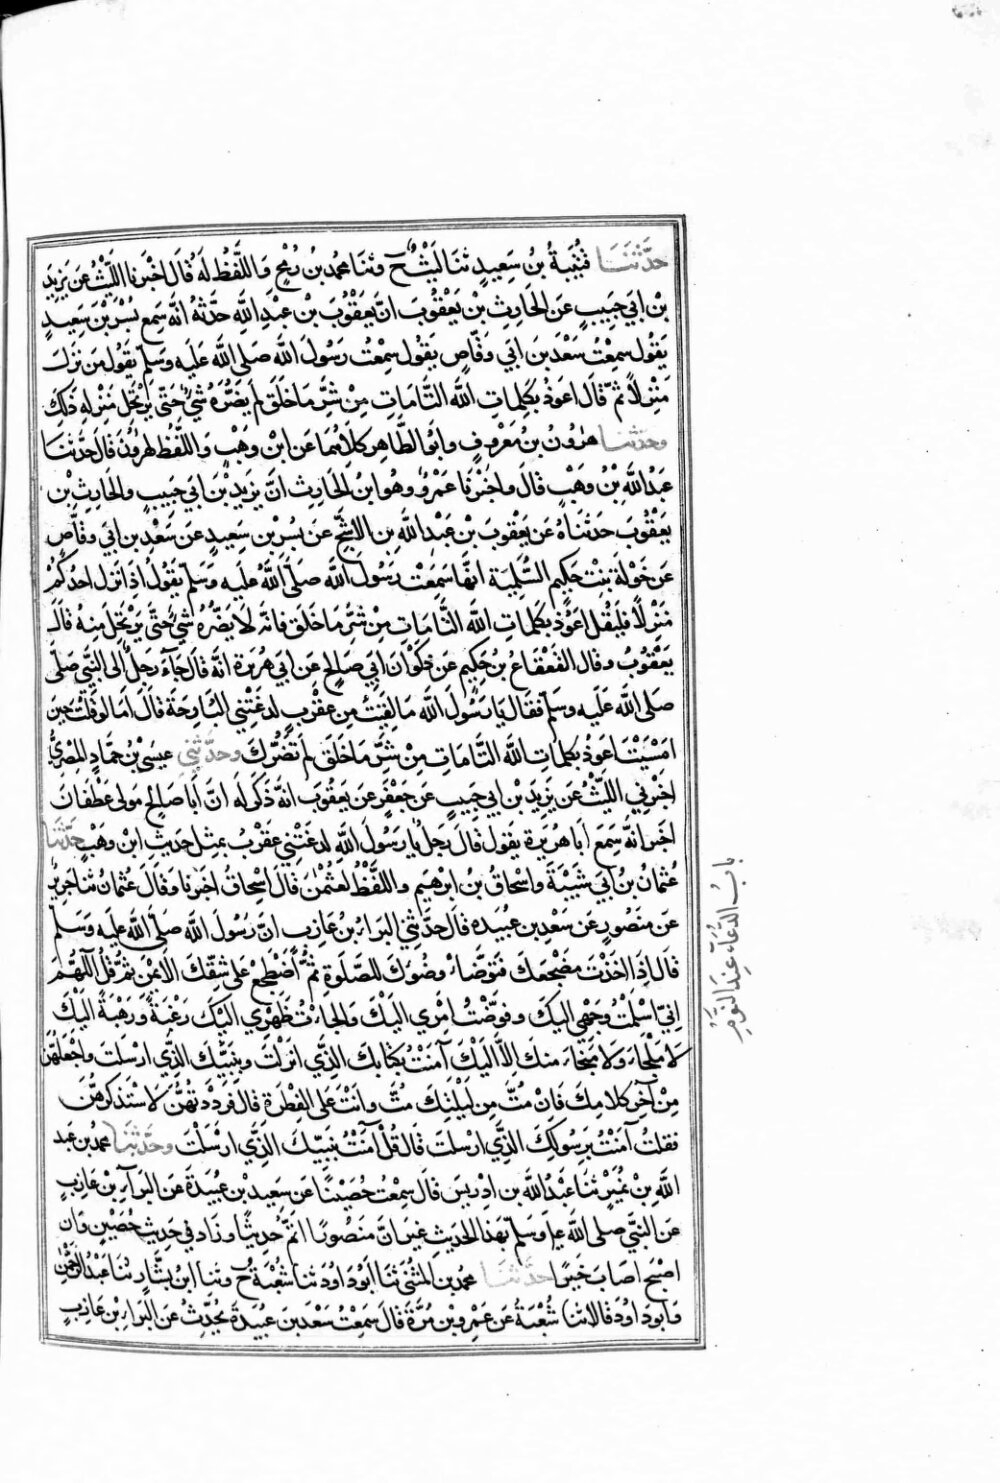 حدثنا قتيبة بن سعيد ثنا ليث ح وثنا محمد بن رمح واللفظ له قال اخبرنا الليث عن يزيد
بن ابي حبيب عن الحارث بن يعقوب ان يعقوب بن عبد الله حدثه انه سمع بسر بن سعيد
يقول سمعت سعد بن ابي وقاص يقول سمعت رسول الله صلى الله عليه وسلم يقول من نزل
منزلا ثم قال اعوذ بكلمات الله التامات من شر ما خلق لم يضره شيء حتى يرتحل من منزله ذلك
وحدثنا هرون بن معروف وابو الطاهر كلاهما عن ابن وهب واللفظ لهرون قال حدثنا
عبد الله بن وهب قال واخبرنا عمرو وهو ابن الحارث ان يزيد بن ابي حبيب والحارث بن
يعقوب حدثناه عن يعقوب بن عبد الله بن الاشج عن بسر بن سعيد عن سعد بن ابي وقاص
عن خولة بنت حكيم السلمية انها سمعت رسول الله صلى الله عليه وسلم يقول اذا نزل احدكم
منزلا فليقل اعوذ بكلمات الله التامات من شر ما خلق فانه لا يضره شيء حتى يرتحل منه قال
يعقوب وقال القعقاع بن حكيم عن ذكوان ابي صالح عن ابي هريرة انه قال جاء رجل الى النبي صلى
صلى الله عليه وسلم فقال يا رسول الله ما لقيت من عقرب لدغتني البارحة قال اما لو قلت حين
امسيت اعوذ بكلمات الله التامات من شر ما خلق لم تضرك وحدثني عيسى بن حماد المصري
اخبرني الليث عن يزيد بن ابي حبيب عن جعفر عن يعقوب انه ذكر له ان ابا صالح مولى غطفان
اخبره انه سمع ابا هريرة يقول قال رجل يا رسول الله لدغتني عقرب بمثل حديث ابن وهب حدثنا
عثمان بن ابي شيبة واسحاق بن ابرهيم واللفظ لعثمن قال اسحاق اخبرنا وقال عثمان ثنا جرير
عن منصور عن سعد بن عبيدة قال حدثني البراء بن عازب ان رسول الله صلى الله عليه وسلم
قال اذا اخذت مضجعك فتوضأ وضوءك للصلوة ثم اضطجع على شقك الايمن ثم قل اللهم
اني اسلمت وجهي اليك وفوضت امري اليك والجأت ظهري اليك رغبة ورهبة اليك
لا ملجاء ولا منجاء منك الا اليك آمنت بكتابك الذي انزلت وبنبيك الذي ارسلت واجعلهن
من آخر كلامك فان مت من ليلتك مت وانت على الفطرة قال فرددتهن لاستذكرهن
فقلت آمنت برسولك الذي ارسلت قال قل آمنت بنبيك الذي ارسلت وحدثنا محمد بن عبد
الله بن نمير ثنا عبد الله بن ادريس قال سمعت حصينا عن سعيد بن عبيدة عن البراء بن عازب
عن النبي صلى الله عليه وسلم بهذا الحديث غير ان منصورا اتم حديثا وزاد في حديث حصين وان
اصبح اصاب خيرا حدثنا محمد بن المثنى ثنا ابو داود ثنا شعبة ح وثنا ابن بشار ثنا عبد الرحمن
وابو داود قالا ثنا شعبة عن عمرو بن مرة قال سمعت سعد بن عبيدة يحدث عن البراء بن عازب
باب الدعاء عند النوم